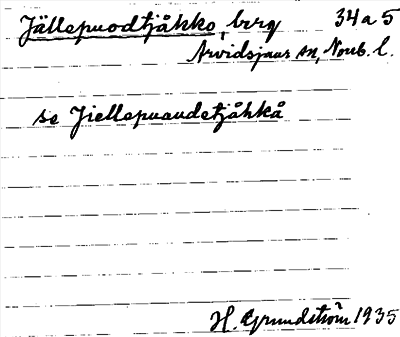 Jällepuodtjåhko, berg 34 a 5
Arvidsjaurs sn, Norrb. l.
se Jiellepuaudetjåhkå
H. Grundström 1935